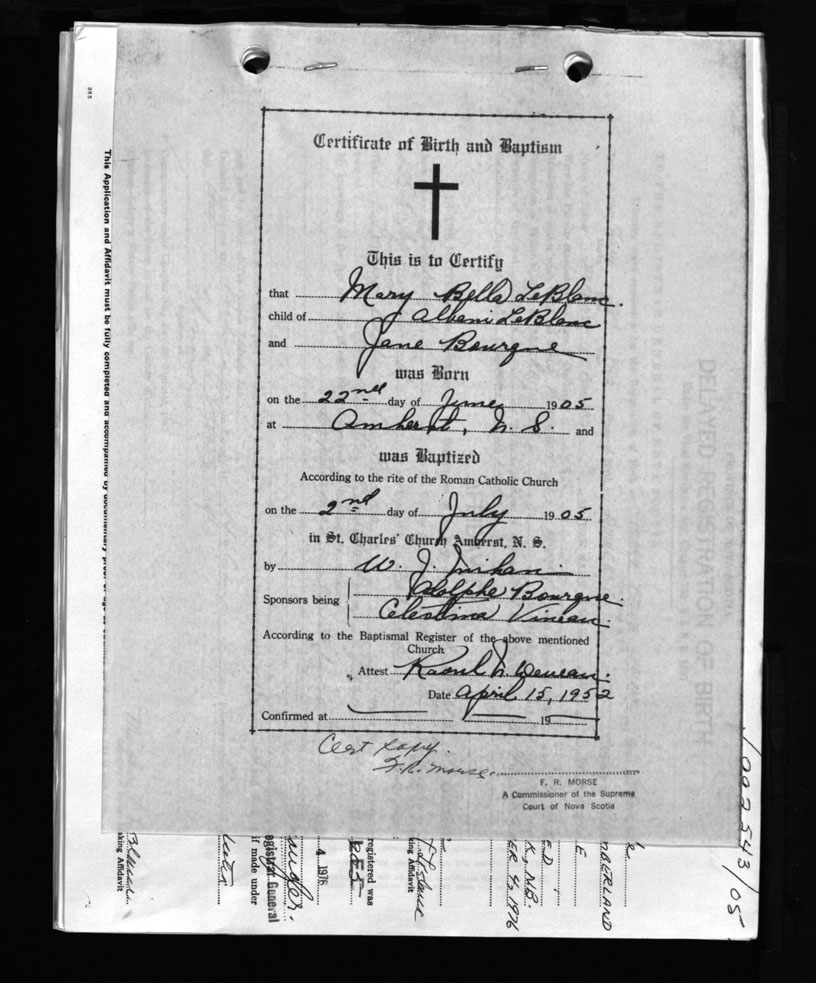 Certificate of Birth and Baptism
This is to Certify
that Mary Bella LeBlanc.
child of Albeni LeBlanc
and Jane Bourgue
was Born
on the 22nd day of June 1905
at Amherst, N. S. and
was Baptized
According to the rite of the Roman Catholic Church
on the 2nd day of July 1905
in St. Charles' Church Amherst, N. S.
by W. J.
Sponsors being Adolphe Bourgue.
Celestina Vineau.
According to the Baptismal Register of the above mentioned
Church
Attest Raoul
Date April 15, 1952
Confirmed at 19
Cert copy.
F. R. Morse.
F. R. MORSE
A Commissioner of the Supreme
Court of Nova Scotia
365
This Application and Affidavit must be fully completed and accompanied by documentary
DELAYED REGISTRATION OF BIRTH
002543/05
MBERLAND
E
E.D
K, N.B.
ER 1976
king Affidavit
registered was
DES
4 1976
egistrar General
if made under
aking Affidavit